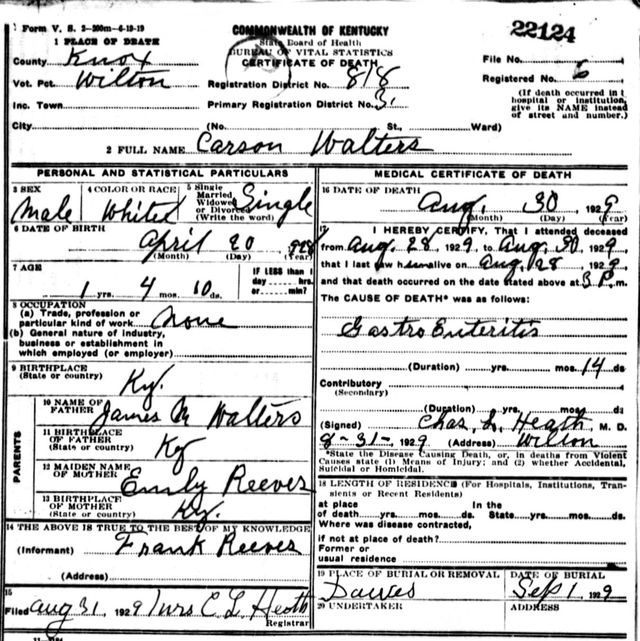 Form V. S. 2-300m-6-19-19
COMMONWEALTH OF KENTUCKY
22124
1 PLACE OF DEATH
State Board of Health
BUREAU OF VITAL STATISTICS
CERTIFICATE OF DEATH
County Knox
File No.
Vot. Pct. Wilton
Registration District No. 818
Registered No. 6
Inc. Town
Primary Registration District No. 3
(If death occurred in a hospital or institution, give its NAME instead of street and number.)
City (No. St., Ward)
2 FULL NAME Carson Walters
PERSONAL AND STATISTICAL PARTICULARS
3 SEX
Male
4 COLOR OR RACE
White
5 Single Married Widowed or Divorced (Write the word)
Single
6 DATE OF BIRTH
April 20 1928
(Month) (Day) (Year)
7 AGE
1 yrs. 4 mos. 10 ds.
IF LESS than 1 day hrs. or min?
8 OCCUPATION
(a) Trade, profession or particular kind of work none
(b) General nature of industry, business or establishment in which employed (or employer)
9 BIRTHPLACE
(State or country) Ky.
PARENTS
10 NAME OF FATHER James M Walters
11 BIRTHPLACE OF FATHER
(State or country) Ky
12 MAIDEN NAME OF MOTHER Emily Reeves
13 BIRTHPLACE OF MOTHER
(State or country) Ky.
14 THE ABOVE IS TRUE TO THE BEST OF MY KNOWLEDGE
(Informant) Frank Reeves
(Address)
15
Filed Aug 31, 1929 Mrs C L Heath
Registrar
MEDICAL CERTIFICATE OF DEATH
16 DATE OF DEATH
Aug. 30, 1929
(Month) (Day) (Year)
17 I HEREBY CERTIFY, That I attended deceased
from Aug. 28, 1929, to Aug. 30, 1929,
that I last saw him alive on Aug. 28, 1929,
and that death occurred on the date stated above at 5 P.m.
The CAUSE OF DEATH* was as follows:
Gastro Enteritis
(Duration) yrs. mos. 14 ds
Contributory
(Secondary)
(Duration) yrs. mos. ds
(Signed) Chas. L. Heath, M. D.
8-31-, 1929 (Address) Wilton
*State the Disease Causing Death, or, in deaths from Violent Causes state (1) Means of Injury; and (2) whether Accidental, Suicidal or Homicidal.
18 LENGTH OF RESIDENCE (For Hospitals, Institutions, Transients or Recent Residents)
at place of death yrs. mos. ds. In the State yrs. mos. ds.
Where was disease contracted, if not at place of death?
Former or usual residence
19 PLACE OF BURIAL OR REMOVAL
DATE OF BURIAL
Sep 1, 1929
20 UNDERTAKER
ADDRESS